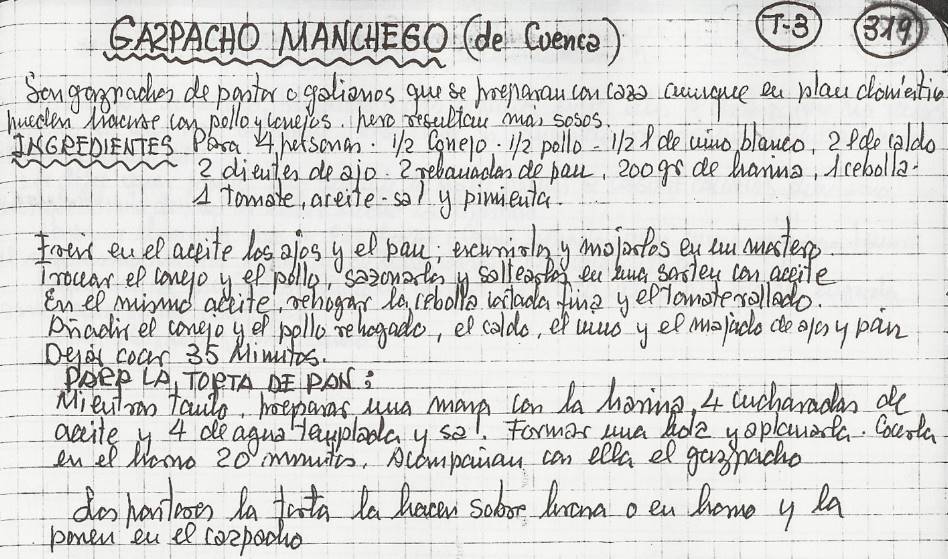 GAZPACHO MANCHEGO (de Cuenca) T-3 319
Son gazpachos de pastor o galianos que se preparan con caza aunque en plan doméstico
pueden hacerse con pollo y conejos, pero resultan mas sosos.
INGREDIENTES Para 4 personas. 1/2 Conejo. 1/2 pollo - 1/2 l de vino blanco, 2 l de caldo
2 dientes de ajo. 2 rebanadas de pan, 200 gs de harina, 1 cebolla.
1 Tomate, aceite - sal y pimienta.
Freir en el aceite los ajos y el pan; escurrirlos y majarlos en un mortero.
Trocear el conejo y el pollo, sazonarlos y saltearlos en una sarten con aceite
En el mismo aceite, rehogar la cebolla cortada fina y el Tomate rallado.
Añadir el conejo y el pollo rehogado, el caldo, el vino y el majado de ajos y pan
Dejar cocer 35 Minutos.
PARA LA TORTA DE PAN:
Mientras tanto, preparar una masa con la harina, 4 cucharadas de
aceite y 4 de agua templada y sal. Formar una bola y aplanarla. Cocerla
en el horno 20 minutos. Acompañan con ella el gazpacho
Los pastores la torta la hacen sobre losa o en horno y la
ponen en el gazpacho